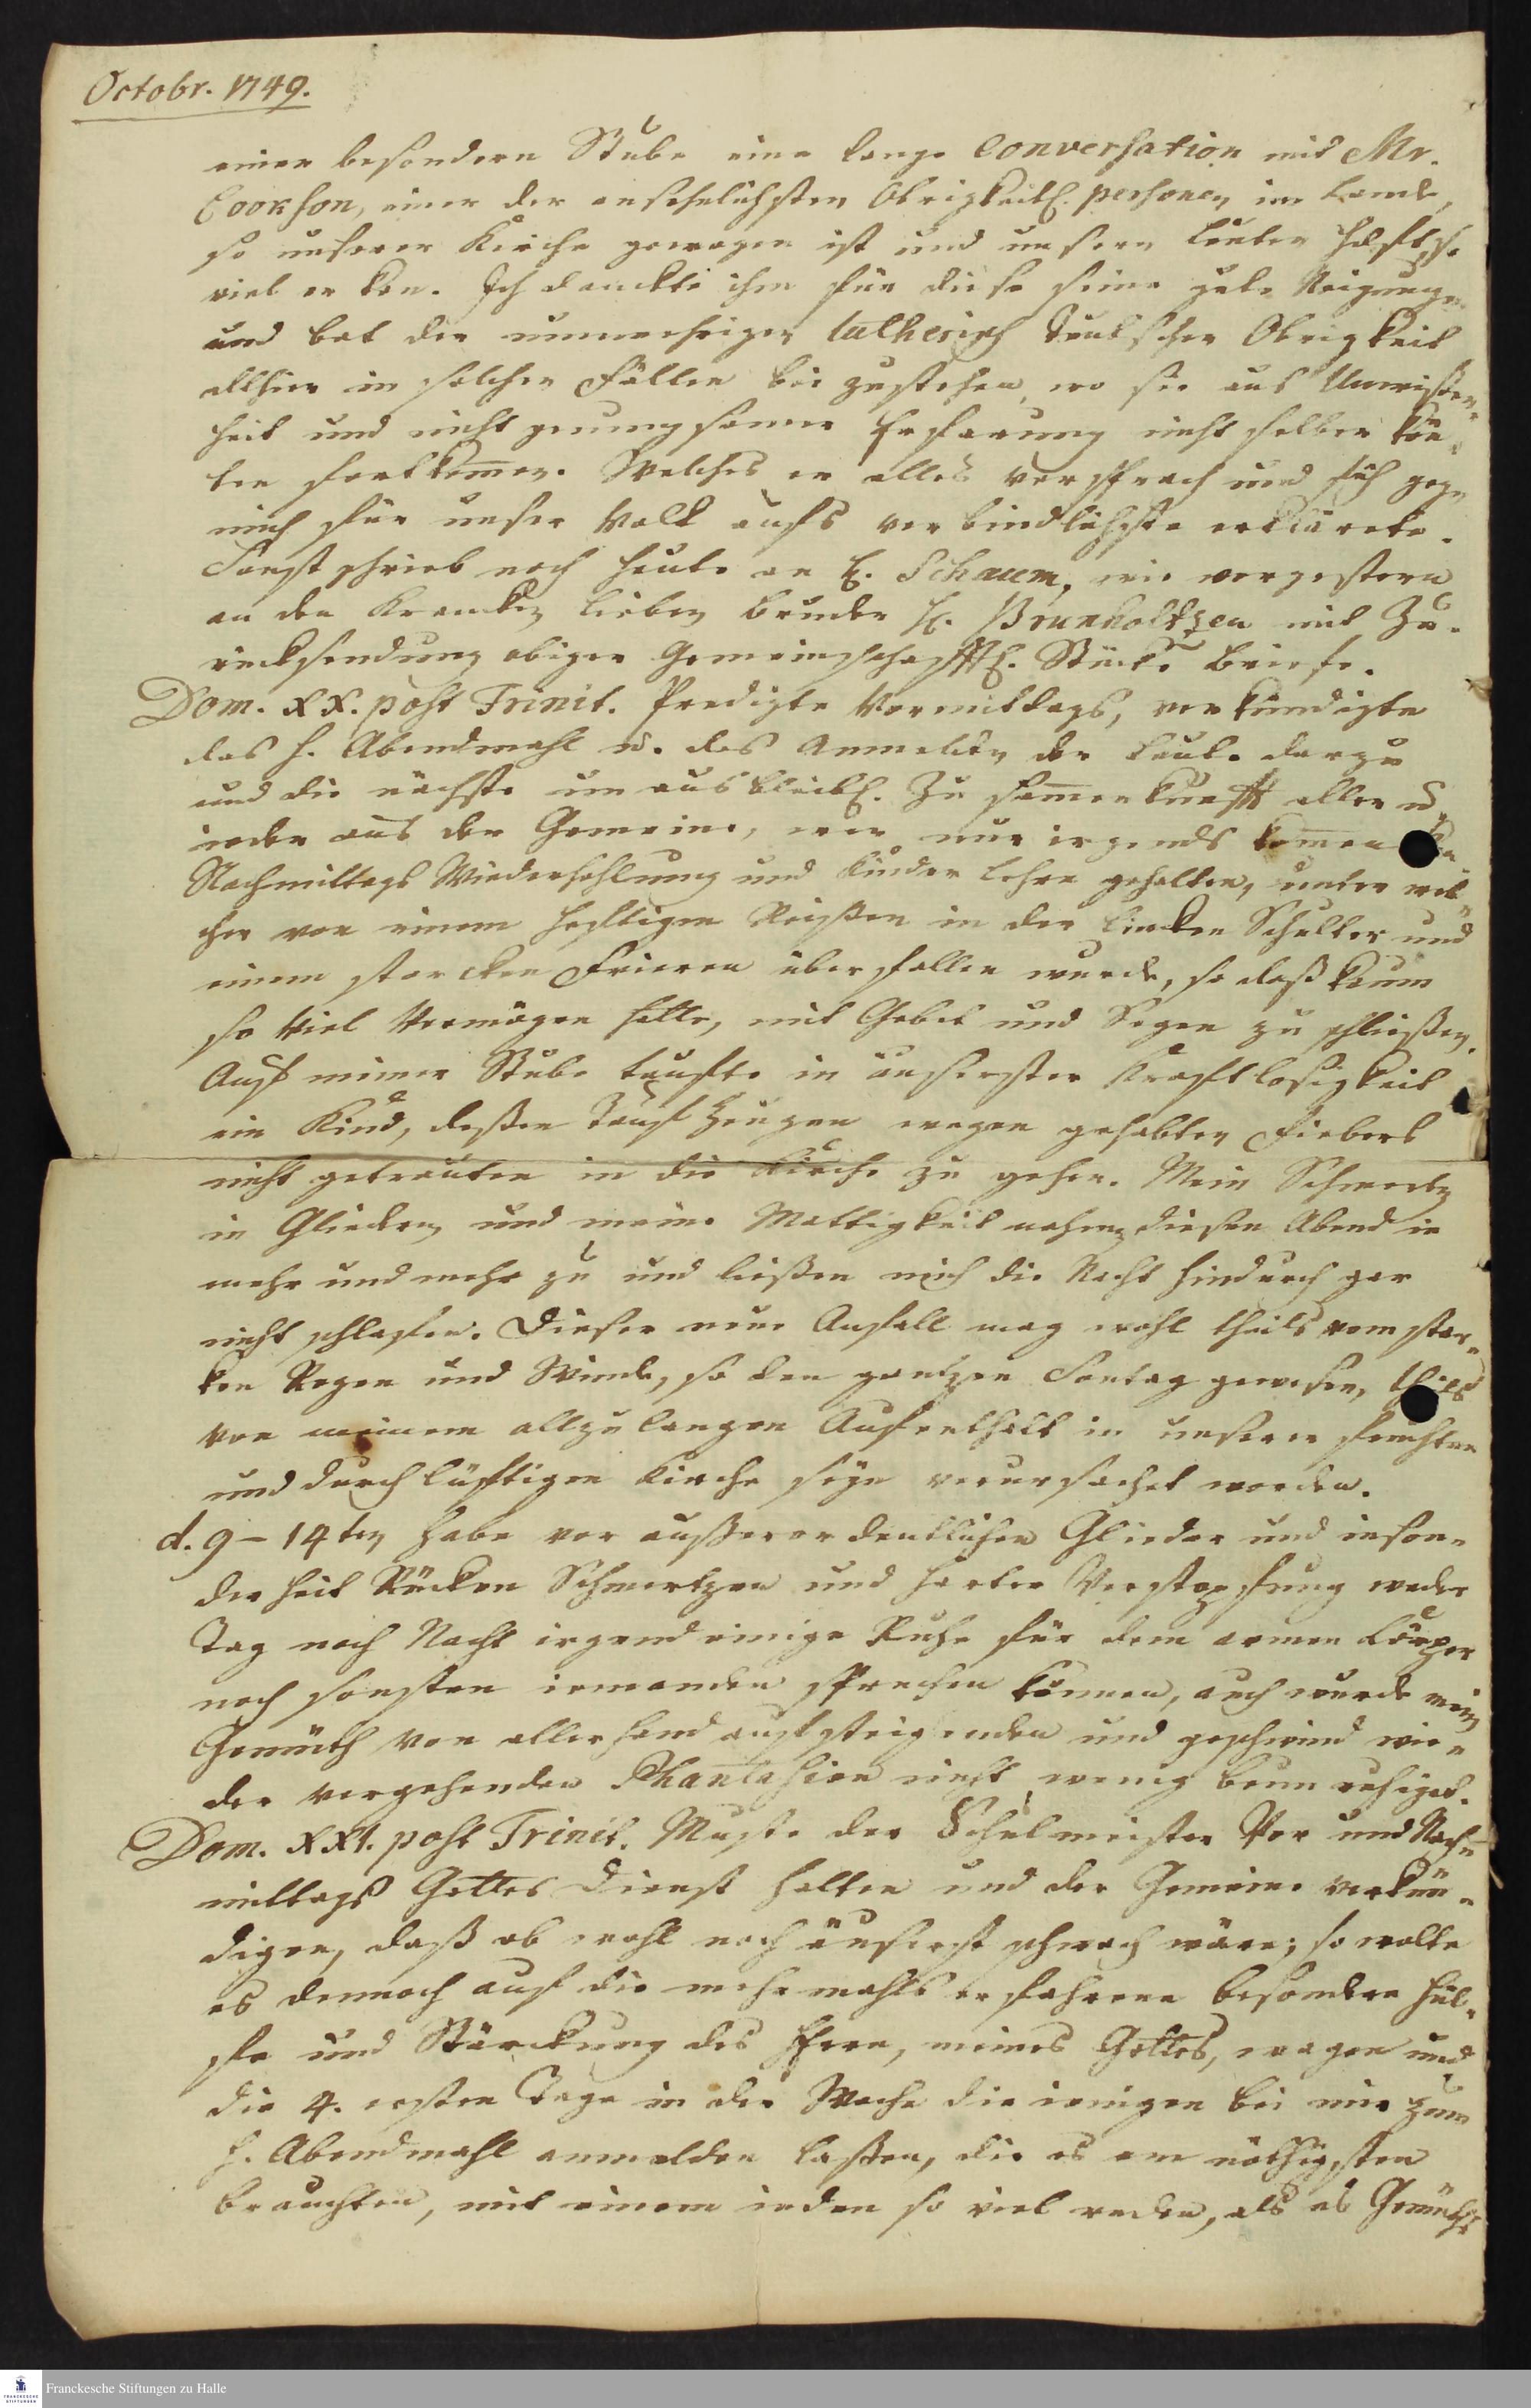 Octobr. 1749.
einer besondern Stube eine lange Conversation mit Mr.
Cookson, einer der ansehnlichsten Obrigkeitl. personen im Lande,
so unserer Kirche gewogen ist und unsern Leuten hilft, so
viel er kan. Ich danckte ihm für diese seine gute Neigung
und bat der nunmehrigen lutherisch Teutschen Obrigkeit
allhier in solchen Fällen bei zustehen, wo sie aus Unwißen-
heit und nicht genungsamer Erfarung nicht selber kön-
ten fortkom̅en. Welches er alles versprach und sich gegen
mich für unser Volk aufs verbindlichste erklärete.
Sonst schrieb noch heute an H. Schaum, wie vorgestern
an den Krancken lieben bruder H. Brunholtzen mit Zu-
rücksendung obiger Gemeinschafftl. Stücke briefe.
Dom. XX. post Trinit. Predigte Vormittags, verkündigte
das h. Abendmahl u. das Anmelden der Leute darzu
und die nächste un ausbleibl. Zusam̅enkunfft aller u.
ieder aus der Gemeine, wer nur irgends kom̅en
Nachmittags Wiederhohlung und Kinder Lehre gehalten, unter wel-
cher von einem hefftigen Reißen in der lincken Schulter und
einem starcken Frieren überfallen wurde, so daß kaum
so viel Vermögen hatte, mit Gebet und Segen zu schließen.
Auf meiner Stube taufte in äuserster Kraftlosigkeit
ein Kind, deßen Tauf Zeugen wegen gehabten Fiebers
nicht getrauten in die Kirche zu gehen. Mein Schmertz
in Gliedern und meine Mattigkeit nahmen diesen Abend ie
mehr und mehr zu und ließen mich die Nacht hindurch gar
nicht schlafen. Dieser neue Anfall mag wohl theils vom star-
ken Regen und Winde, so den gantzen Sontag gewesen, theils
von meinem allzulangen Aufenthalt in unserer feuchten
und durchlüftigen Kirche seyn verursachet worden.
d. 9 - 14ten habe vor außerordentlichen Glieder und inson-
derheit Rücken Schmertzen und harter Verstopfung weder
Tag noch Nacht irgend einige Ruhe für dem armen Cörper
noch sonsten iemanden sprechen können, auch wurde mein
Gemüth von allerhand aufsteigenden und geschwind wie-
der vergehenden Phantasien nicht wenig beunruhiget.
Dom. XXI. post Trinit. Muste der Schulmeister Vor und Nach-
mittags Gottes Dienst halten und der Gemeine verkün-
digen, daß ob wohl noch äuserst schwach wäre; so wolte
es dennoch auf die mehrmahls erfahrene besondere Hül-
fe und Stärckung des Hern, meines Gottes, wagen und
die 4. ersten Tage in der Woche die ienigen bei mir zum
h. Abendmahl anmelden laßen, die es am nöthigsten
brauchten, mit einem ieden so viel reden, als es Gemüths